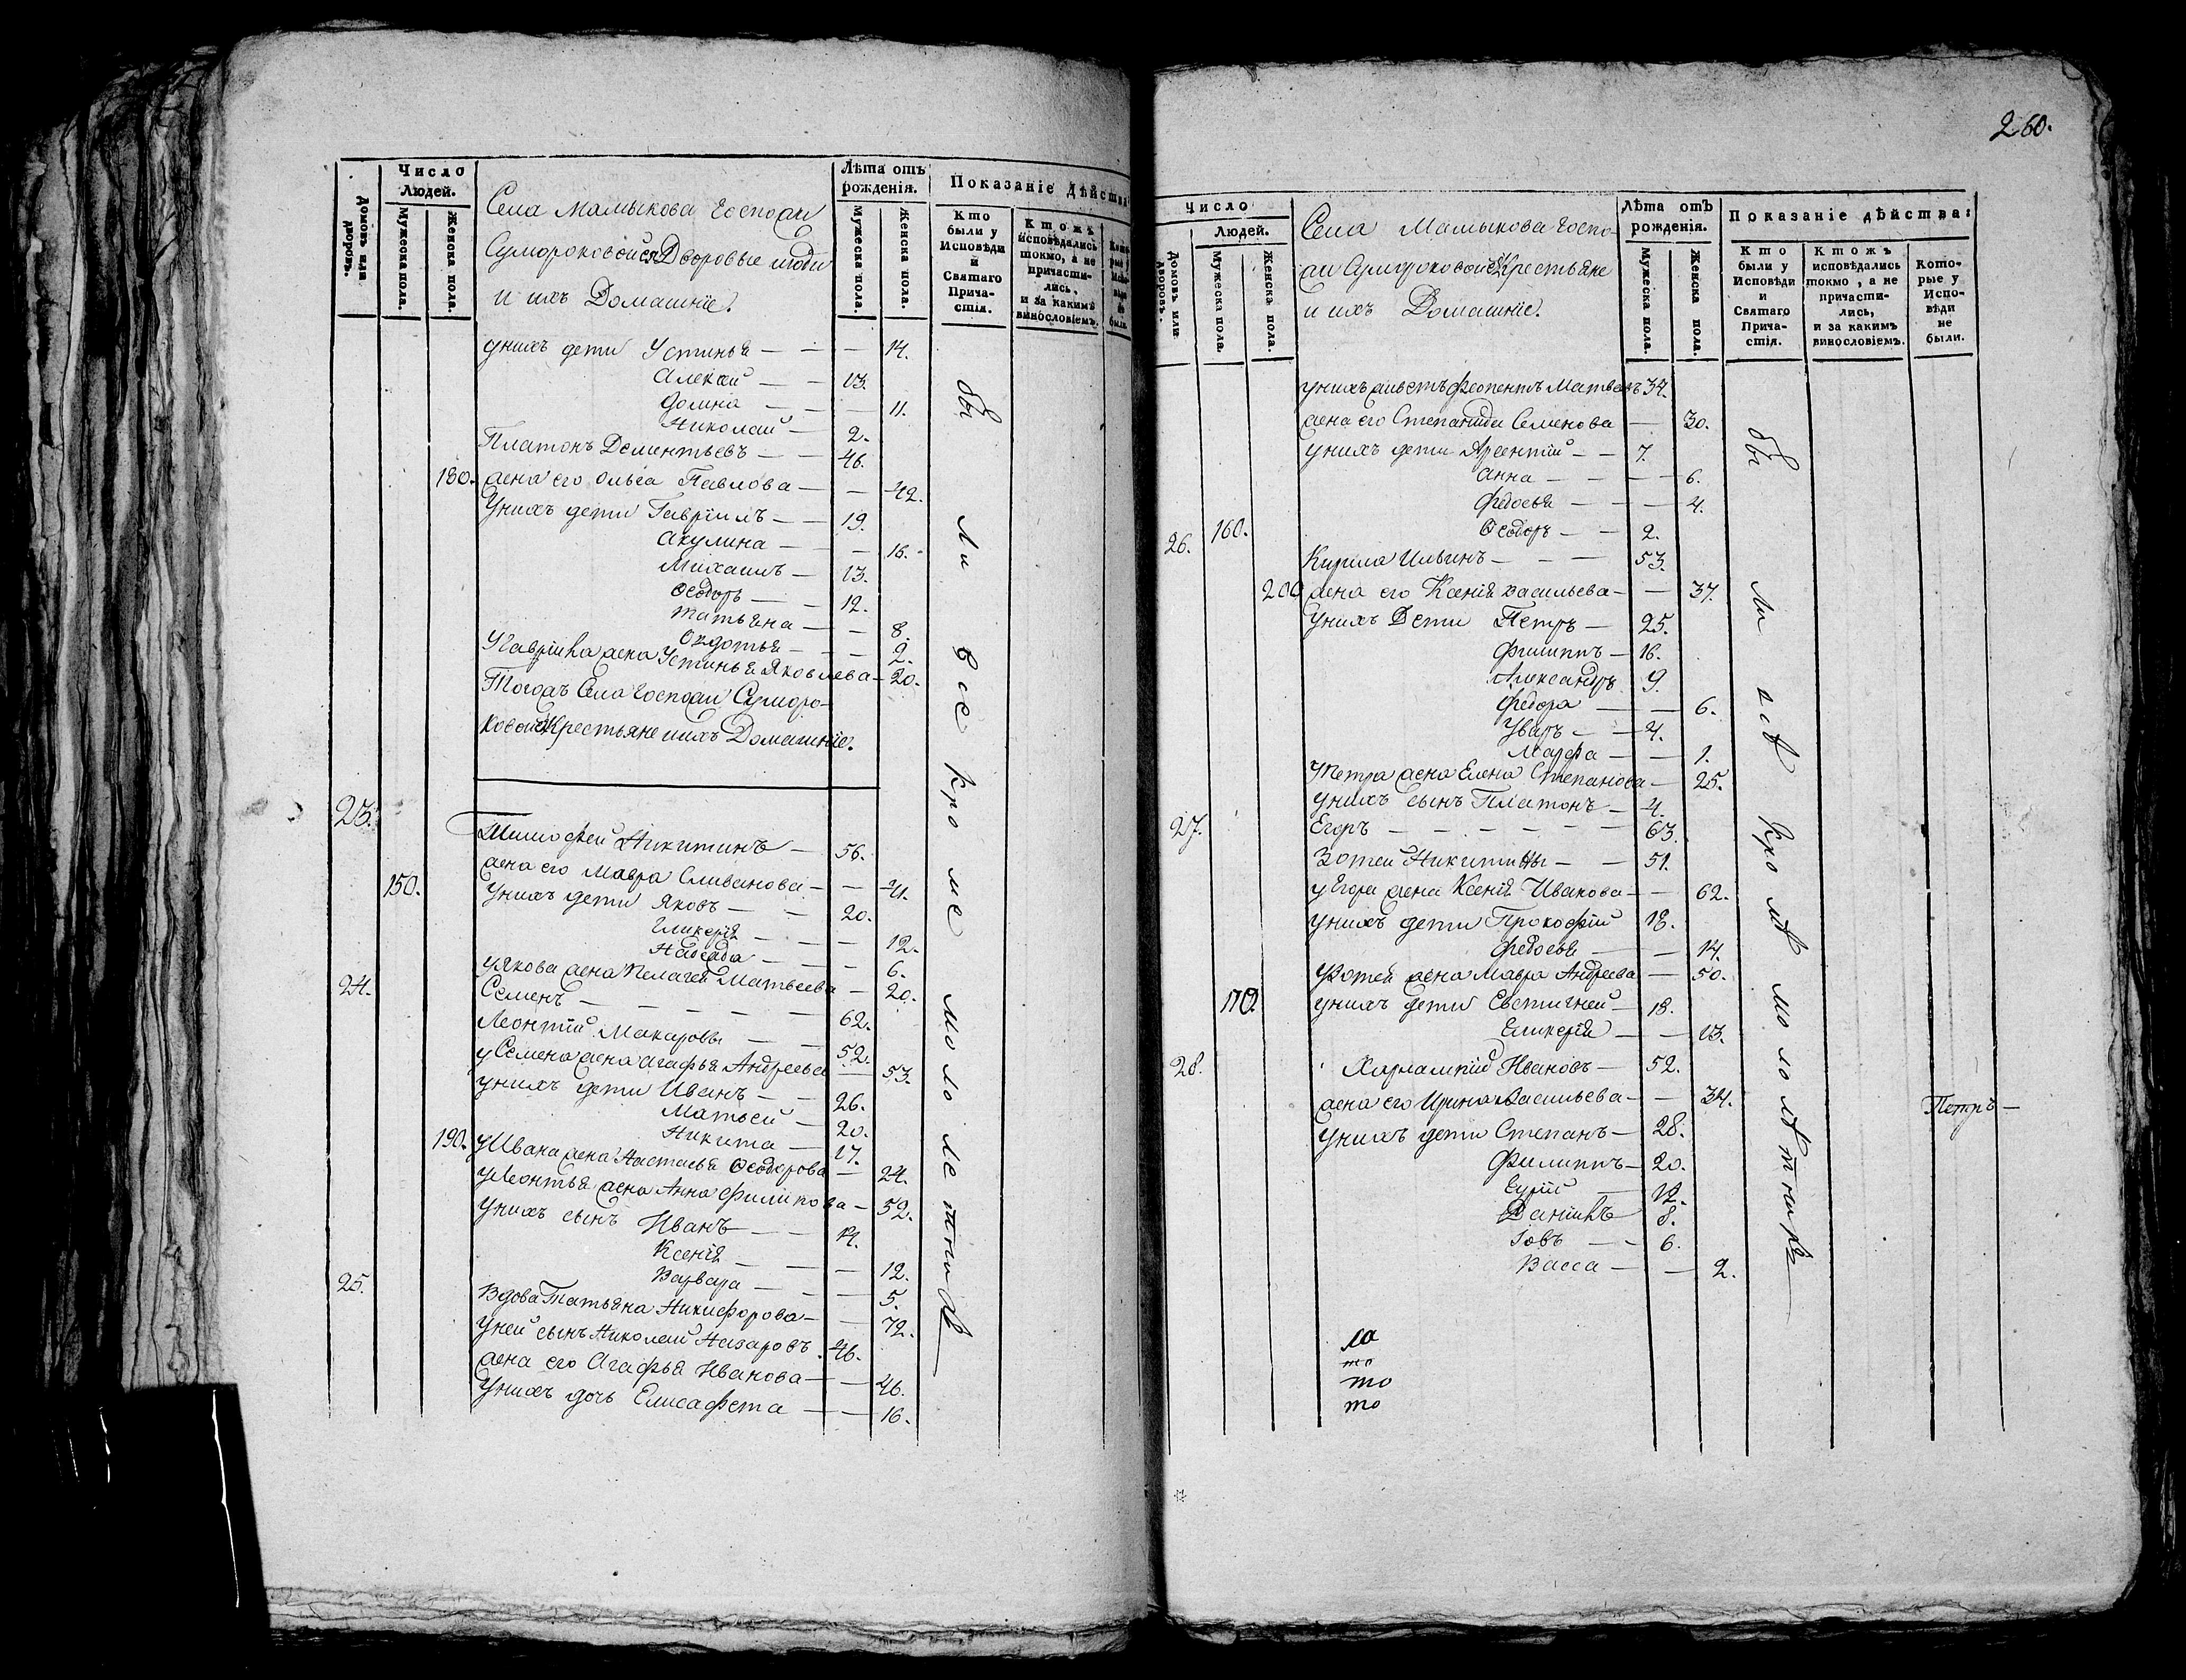 260.
Домовъ или дворовъ.
Число
Людей.
Мужеска пола.
Женска пола.
Села Мамыкова Госпожи
Сумороковой Дворовые люди
и ихъ Домашніе.
Лѣта отъ
рожденія.
Мужеска пола.
Женска пола.
Показаніе Дѣйства
Кто
были у
Исповѣди
и
Святаго
Прича-
стія.
Ктожъ
исповѣдались
токмо, а не
причасти-
лись,
и за какимъ
винословіемъ.
были
унихъ дети Устинья — — — 14.
Алексій — — 13.
Домна — — — 11.
Николай — 2.
Платонъ Дементьевъ — — 46.
180. жена его Ольга Павлова — — 42.
Унихъ дети Гавріилъ — — 19.
Акулина — — 16.
Михаилъ — 13.
Ѳеодоръ — — 12.
Татьяна — — 8.
Овдотья — — — 2.
УГавріила жена Устинья Яковлева — 20.
Тогожъ Села Госпожи Суморо-
ковой Крестьяне иихъ Домашніе.
23. Тимофей Никитинъ — 56.
жена его Мавра Сливанова — — 41.
150. Унихъ дети Яковъ — — 20.
Гликерія — — — 12.
Надежда — — — 6.
уЯкова жена Пелагея Матвеева — 20.
24. Семенъ — — — — — 62.
Леонтій Макаровы — — 52.
уСемена жена Агафья Андреева — 53.
унихъ дети Иванъ — — 26.
Матвей — 20.
Никита — 17.
190. уИвана жена Настасья Ѳеодорова — 24.
уЛеонтья жена Анна Филипова — 52.
Унихъ сынъ Иванъ — — 14.
Ксенія — — — 12.
Варвара — — — 5.
25. Вдова Татьяна Никифорова — — 72.
Уней сынъ Николай Назаровъ 46.
жена его Агафья Иванова — — 46.
Унихъ дочь Елисафета — — 16.
бы ли все кро ме мо ло ле тни хъ
Число
Людей.
Домовъ или дворовъ.
Мужеска пола.
Женска пола.
Села Мамыкова Госпо-
жи Сумороковой Крестьяне
и ихъ Домашніе.
Лѣта отъ
рожденія.
Мужеска пола.
Женска пола.
Показаніе дѣйства:
Кто
были у
Исповѣди
и
Святаго
Прича-
стія.
Ктожъ
исповѣдались
токмо, а не
причасти-
лись,
и за какимъ
винословіемъ.
Кото-
рые у
Испо-
вѣди
не
были.
унихъ Матвеевъ 34.
жена его Степанида Семенова — 30.
унихъ дети Арсентій — — 7.
Анна — — — — 6.
Федосья — — — 4.
160. Ѳеодоръ — — 2.
26. Кирила Ильинъ — — — 53.
200 жена его Ксенія Васильева — — 37.
Унихъ Дети Петръ — 25.
Филиппъ — 16.
Александръ 9.
Федора — — 6.
Уваръ — — 4.
Марфа — — 1.
УПетра жена Елена Степанова — 25.
Унихъ сынъ Платонъ — 4.
27. Егоръ — — — — — — 63.
Зотей Никитины — — 51.
уЕгора жена Ксенія Иванова — — 62.
унихъ дети Прокофій 18.
Федосья — — 14.
уЗотея жена Мавра Андреева — 50.
170. унихъ дети Евстигней — 18.
Гликерія — — 13.
28. Харлампій Ивановъ — 52.
жена его Ирина Васильева — — 34.
унихъ дети Степанъ — 28.
Филиппъ — 20.
Гурій — 12.
Даніилъ 8.
Іовъ — — 6.
Васса — — 2.
бы ли всѣ кро мѣ мо ло лѣ тни хъ
Петръ —
то
то
то